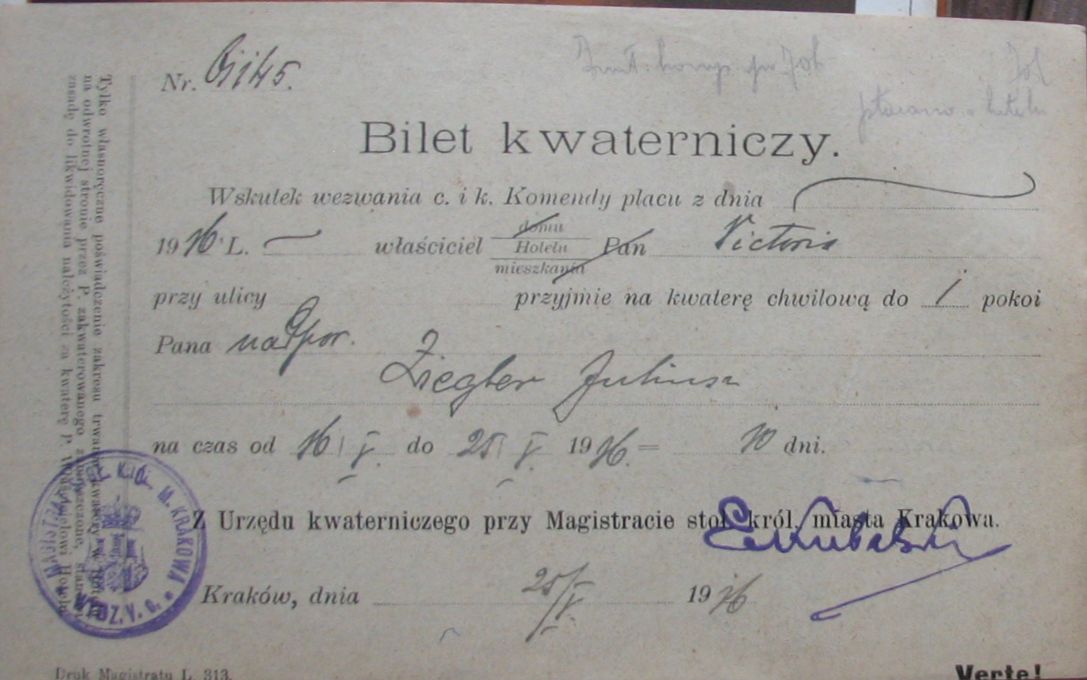 Nr.
Bilet kwaterniczy.
Wskutek wezwania c. i k. Komendy placu z dnia
1916 L. właściciel domu Hotelu mieszkania Pan Victoria
przy ulicy przyjmie na kwaterę chwilową do 1 pokoi
Pana nadpor.
Ziegler Juliusz
na czas od 16/V. do 25/V. 1916 = 10 dni.
Z Urzędu kwaterniczego przy Magistracie stoł. król. miasta Krakowa.
Kraków, dnia 25/V 1916
Druk Magistratu L. 313.
Verte!
Tylko własnoręczne poświadczenie zakresu
na odwrotnej stronie przez P. zakwaterowanego
zasadę do likwidowania należytości za kwaterę P.
M. KRAKOWA